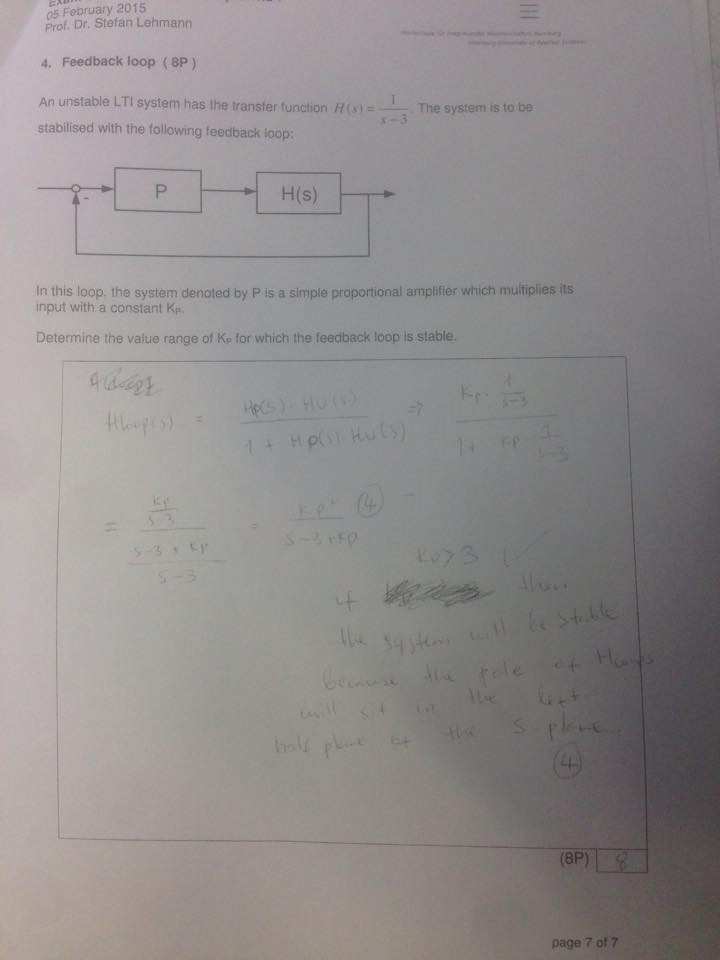 05 February 2015
Prof. Dr. Stefan Lehmann
4. Feedback loop ( 8P )
An unstable LTI system has the transfer function H(s) = 1/(s-3). The system is to be
stabilised with the following feedback loop:
P
H(s)
-
In this loop, the system denoted by P is a simple proportional amplifier which multiplies its
input with a constant KP.
Determine the value range of KP for which the feedback loop is stable.
Hloop(s) = Hp(s) · Hu(s) / 1 + Hp(s) Hu(s) => Kp · 1/(s-3) / 1 + Kp 1/(s-3)
= Kp/(s-3) / (s-3+Kp)/(s-3) = Kp / s-3+Kp 4
Kp>3
if then
the system will be stable
because the pole of Hloop
will sit in the left
half plane of the S plane.
4
(8P) 8
page 7 of 7